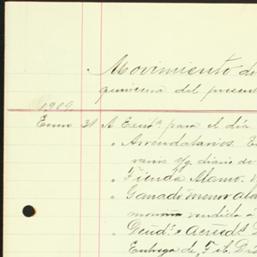 Movimiento de
quincena del present
1909
Enero 31 A Exist.ª para el día
" Arrendatarios.
varios s/g. diario de
" Tienda Alamo.
" Ganado menor
vendida á
" Deud.s y Acreed.s
Entrega de